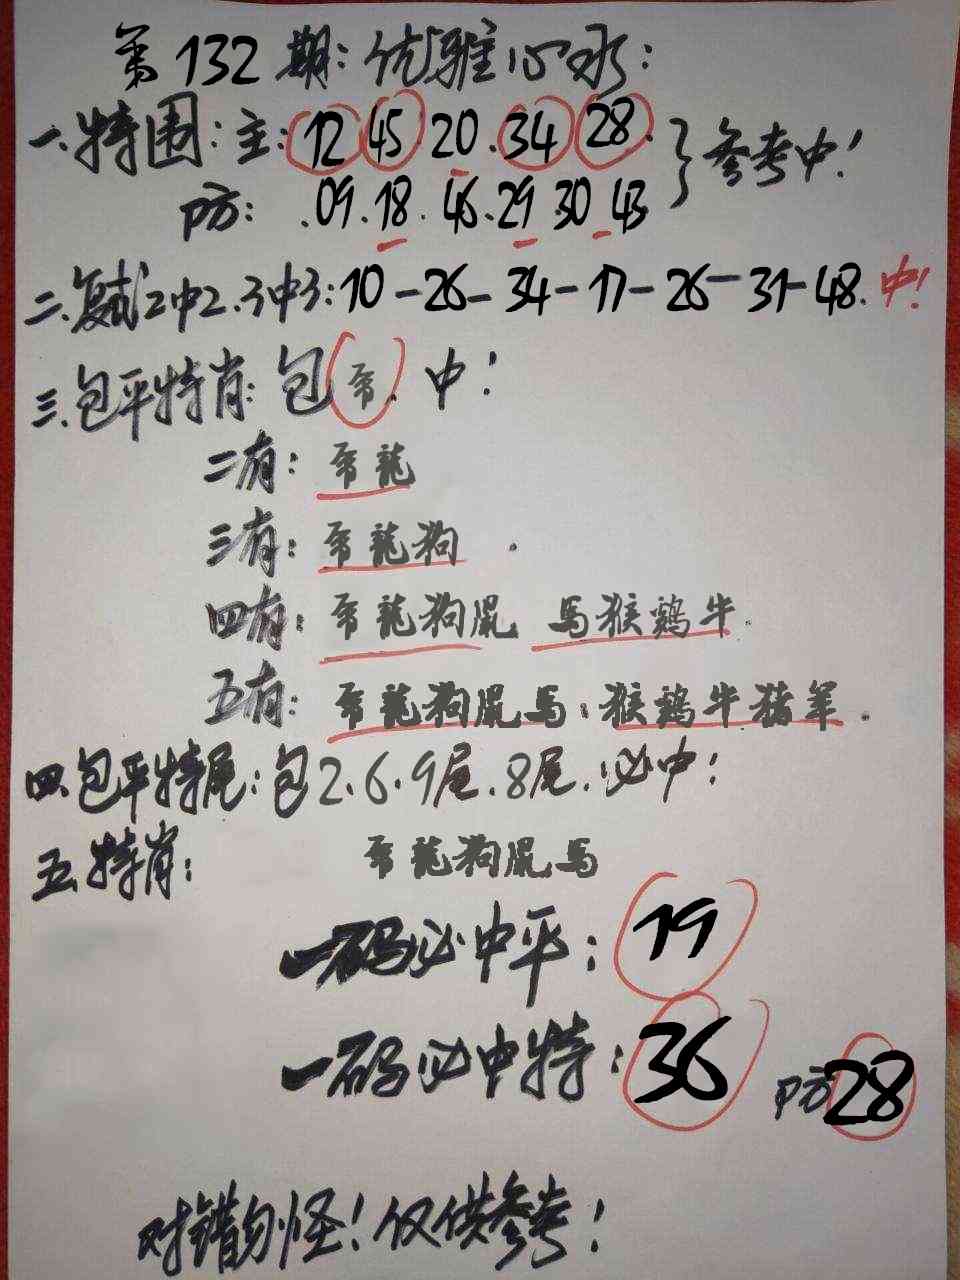 第132期:优雅心水:
一.特围:主:12 45 20.34 28.}参考中!
防: .09.18.46.29 30 43
二.复试2中2.3中3:10-26-34-17-26-31-48.中!
三.包平特肖:包 . 中!
二有: 龍
三有: 龍狗 .
四有: 龍狗鼠 馬猴鷄牛.
五有: 龍狗鼠馬.猴鷄牛猪羊.
四.包平特尾:包2.6.9尾.8尾.必中!
五.特肖: 龍狗鼠馬
一码必中平:19
一码必中特:36 防28
对错勿怪!仅供参考!